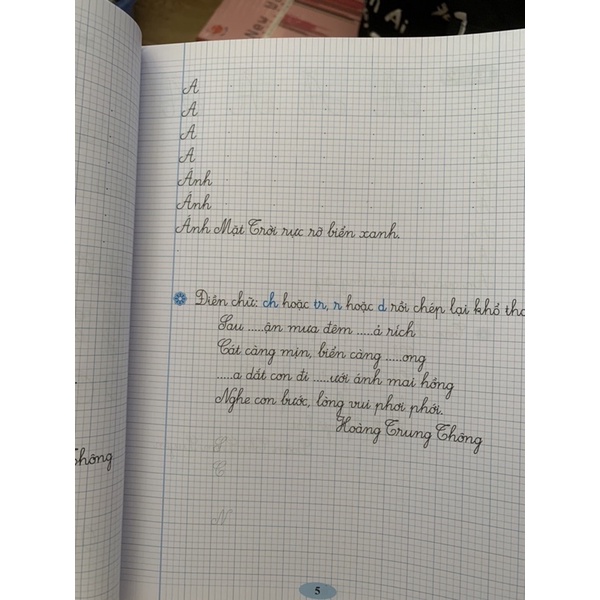 New
Ai
A
A
A
A
Ánh
Ánh
Ánh Mặt Trời rực rỡ biển xanh.
Điền chữ: ch hoặc tr, r hoặc d rồi chép lại khổ
Sau .....ận mưa đêm .....ả rích
Cát càng mịn, biển càng .....ong
.....a dắt con đi .....ưới ánh mai hồng
Nghe con bước, lòng vui phơi phới.
Hoàng Trung Thông
S
C
N
5